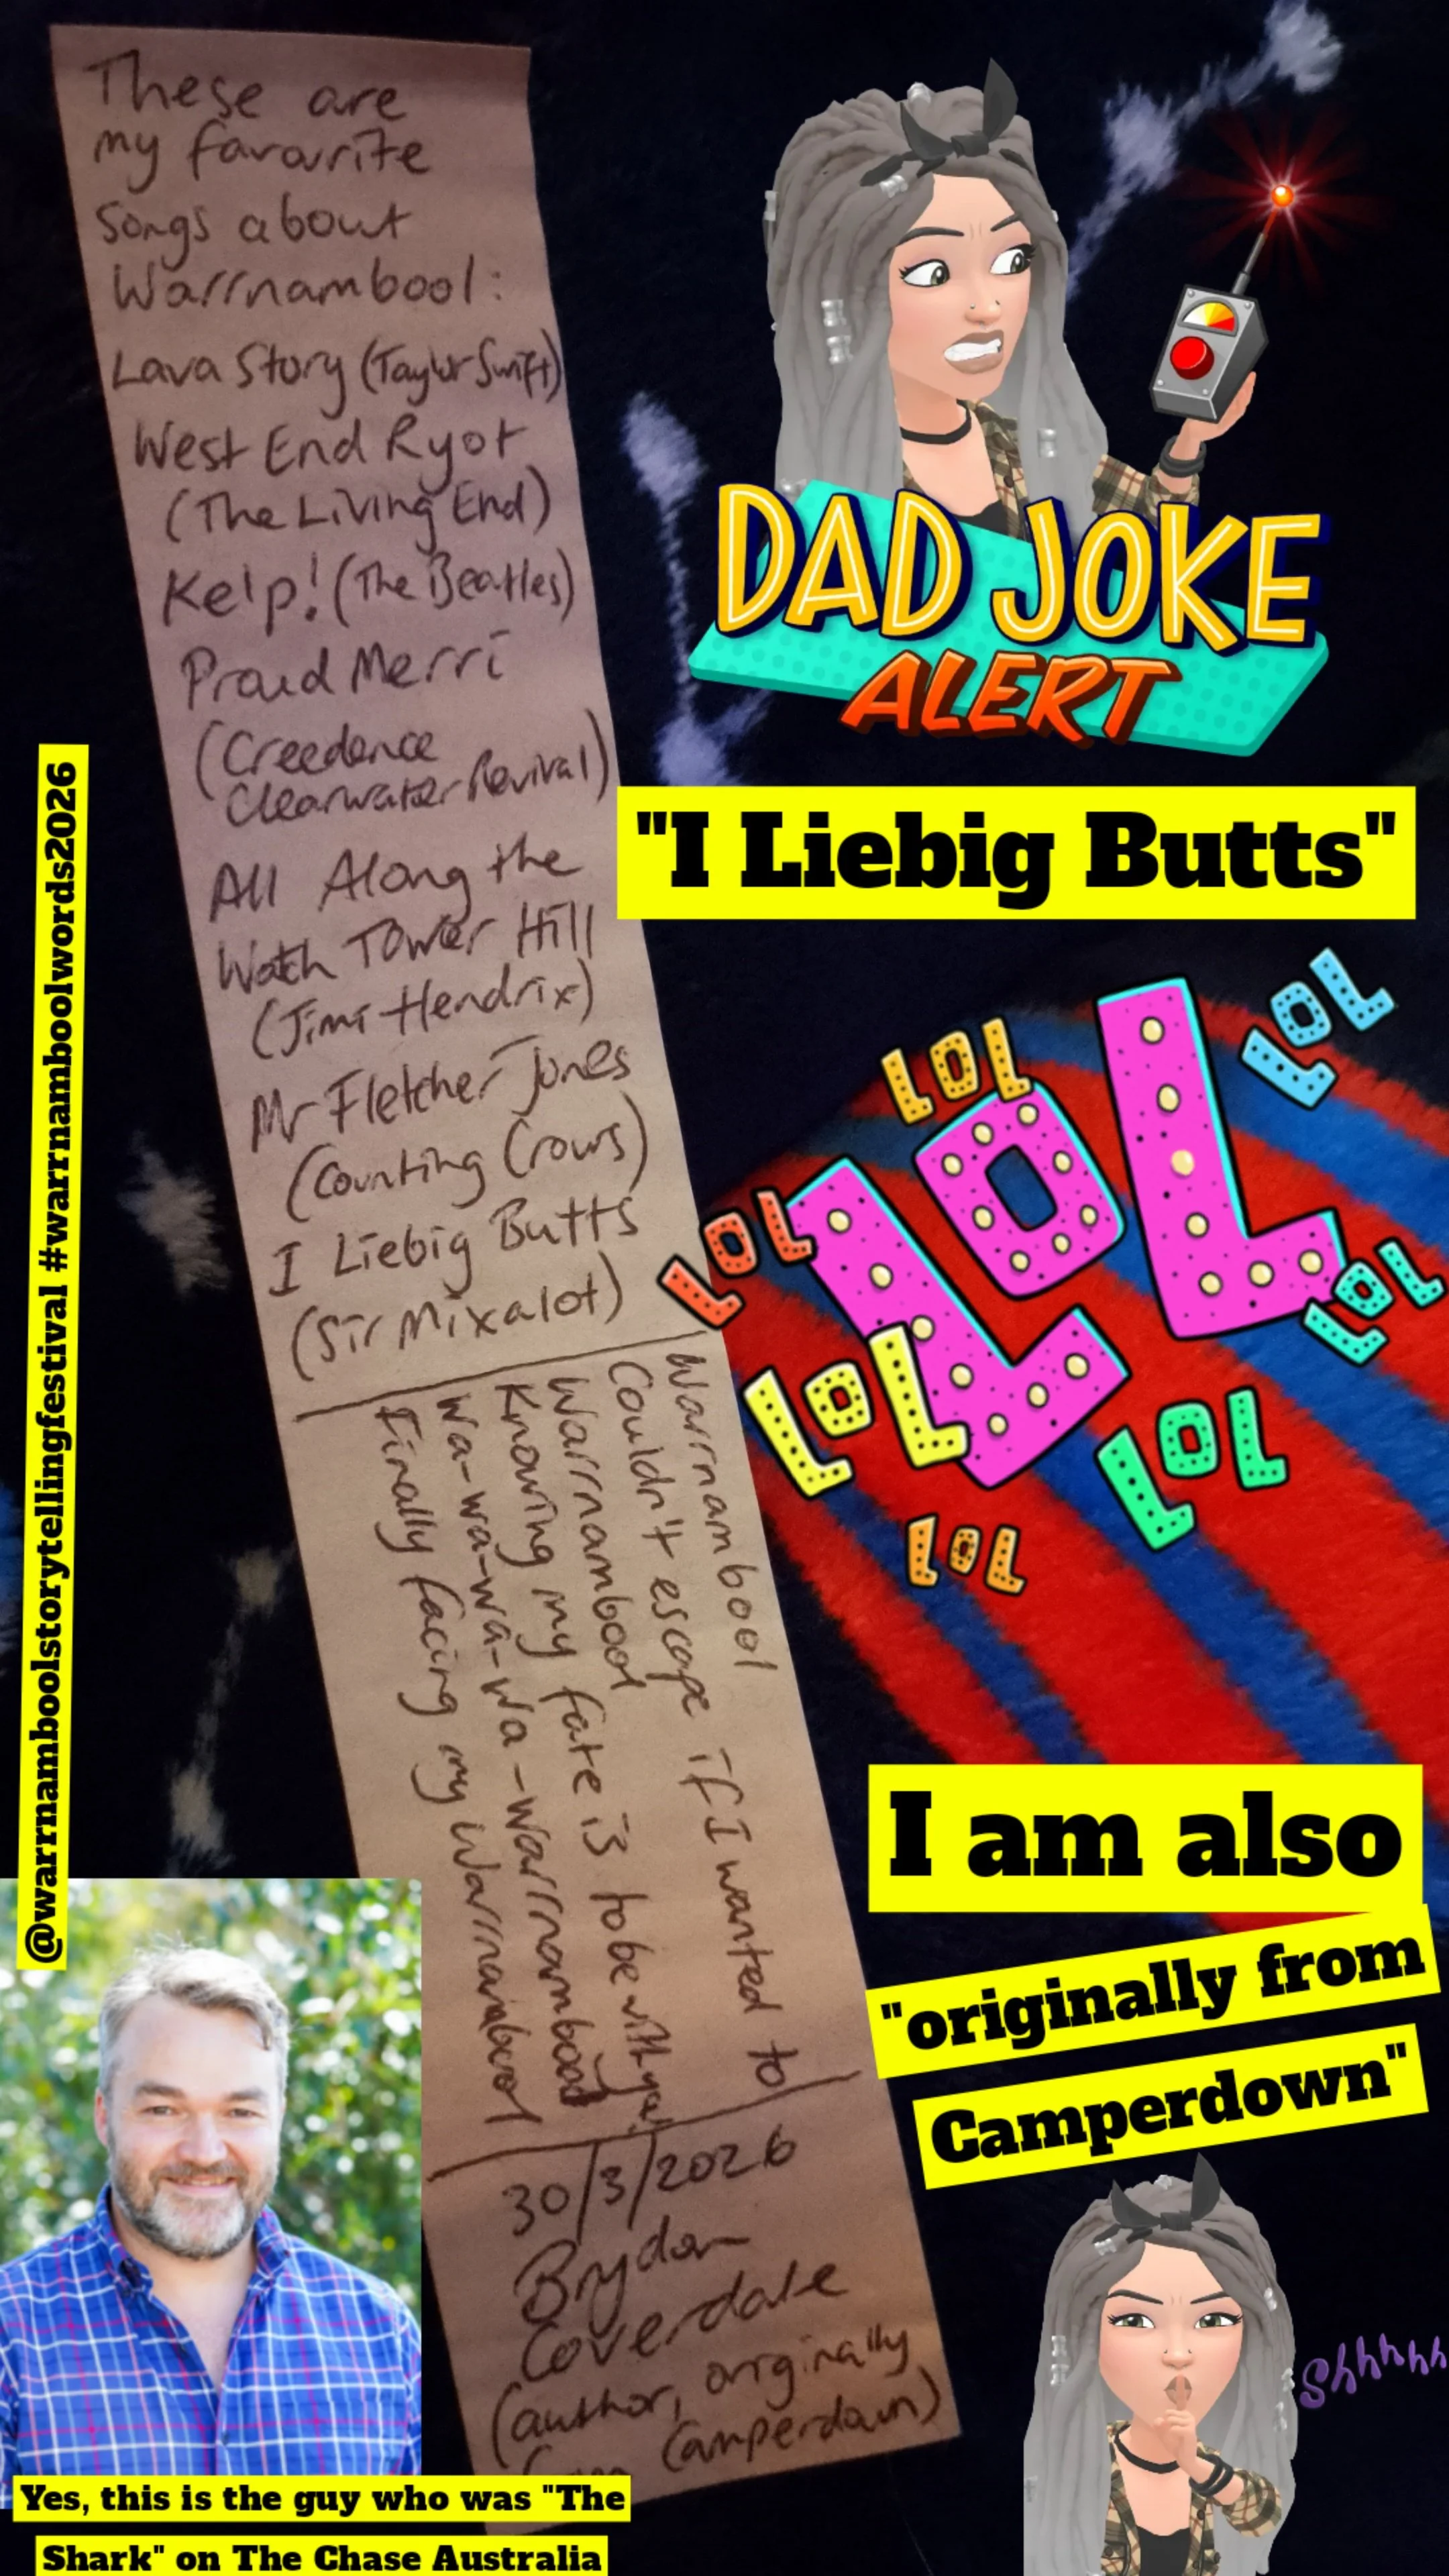 These are
my favourite
songs about
Warrnambool:
Lava Story (Taylor Swift)
West End Ryot
(The Living End)
Kelp! (The Beatles)
Proud Merri
(Creedence
Clearwater Revival)
All Along the
Watch Tower Hill
(Jimi Hendrix)
Mr Fletcher Jones
(Counting Crows)
I Liebig Butts
(Sir Mixalot)
Warrnambool
Couldn't escape if I wanted to
Warrnambool
Knowing my fate is to be with you
Wa-wa-wa-wa-warrnambool
Finally facing my Warrnambool
30/3/2026
Brydon
Coverdale
(author, originally
from Camperdown)
DAD JOKE
ALERT
"I Liebig Butts"
LOL
LOL
LOL
LOL
LOL
LOL
LOL
LOL
I am also
"originally from
Camperdown"
Shhhhh
@warrnamboolstorytellingfestival #warrnamboolwords2026
Yes, this is the guy who was "The
Shark" on The Chase Australia